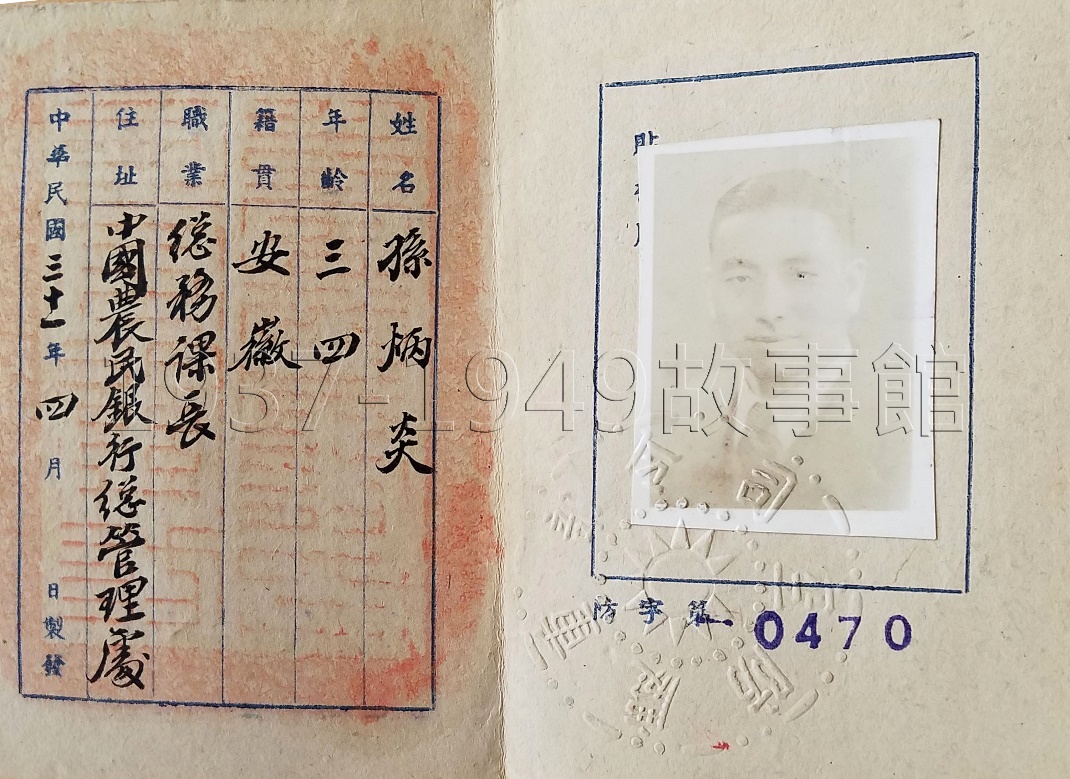 姓名 孫炳炎
年齡 三四
籍貫 安徽
職業 總務課長
住址 中國農民銀行總管理處
中華民國三十一年四月 日製發
防字第 0470
重慶防空司令部
1937-1949故事館